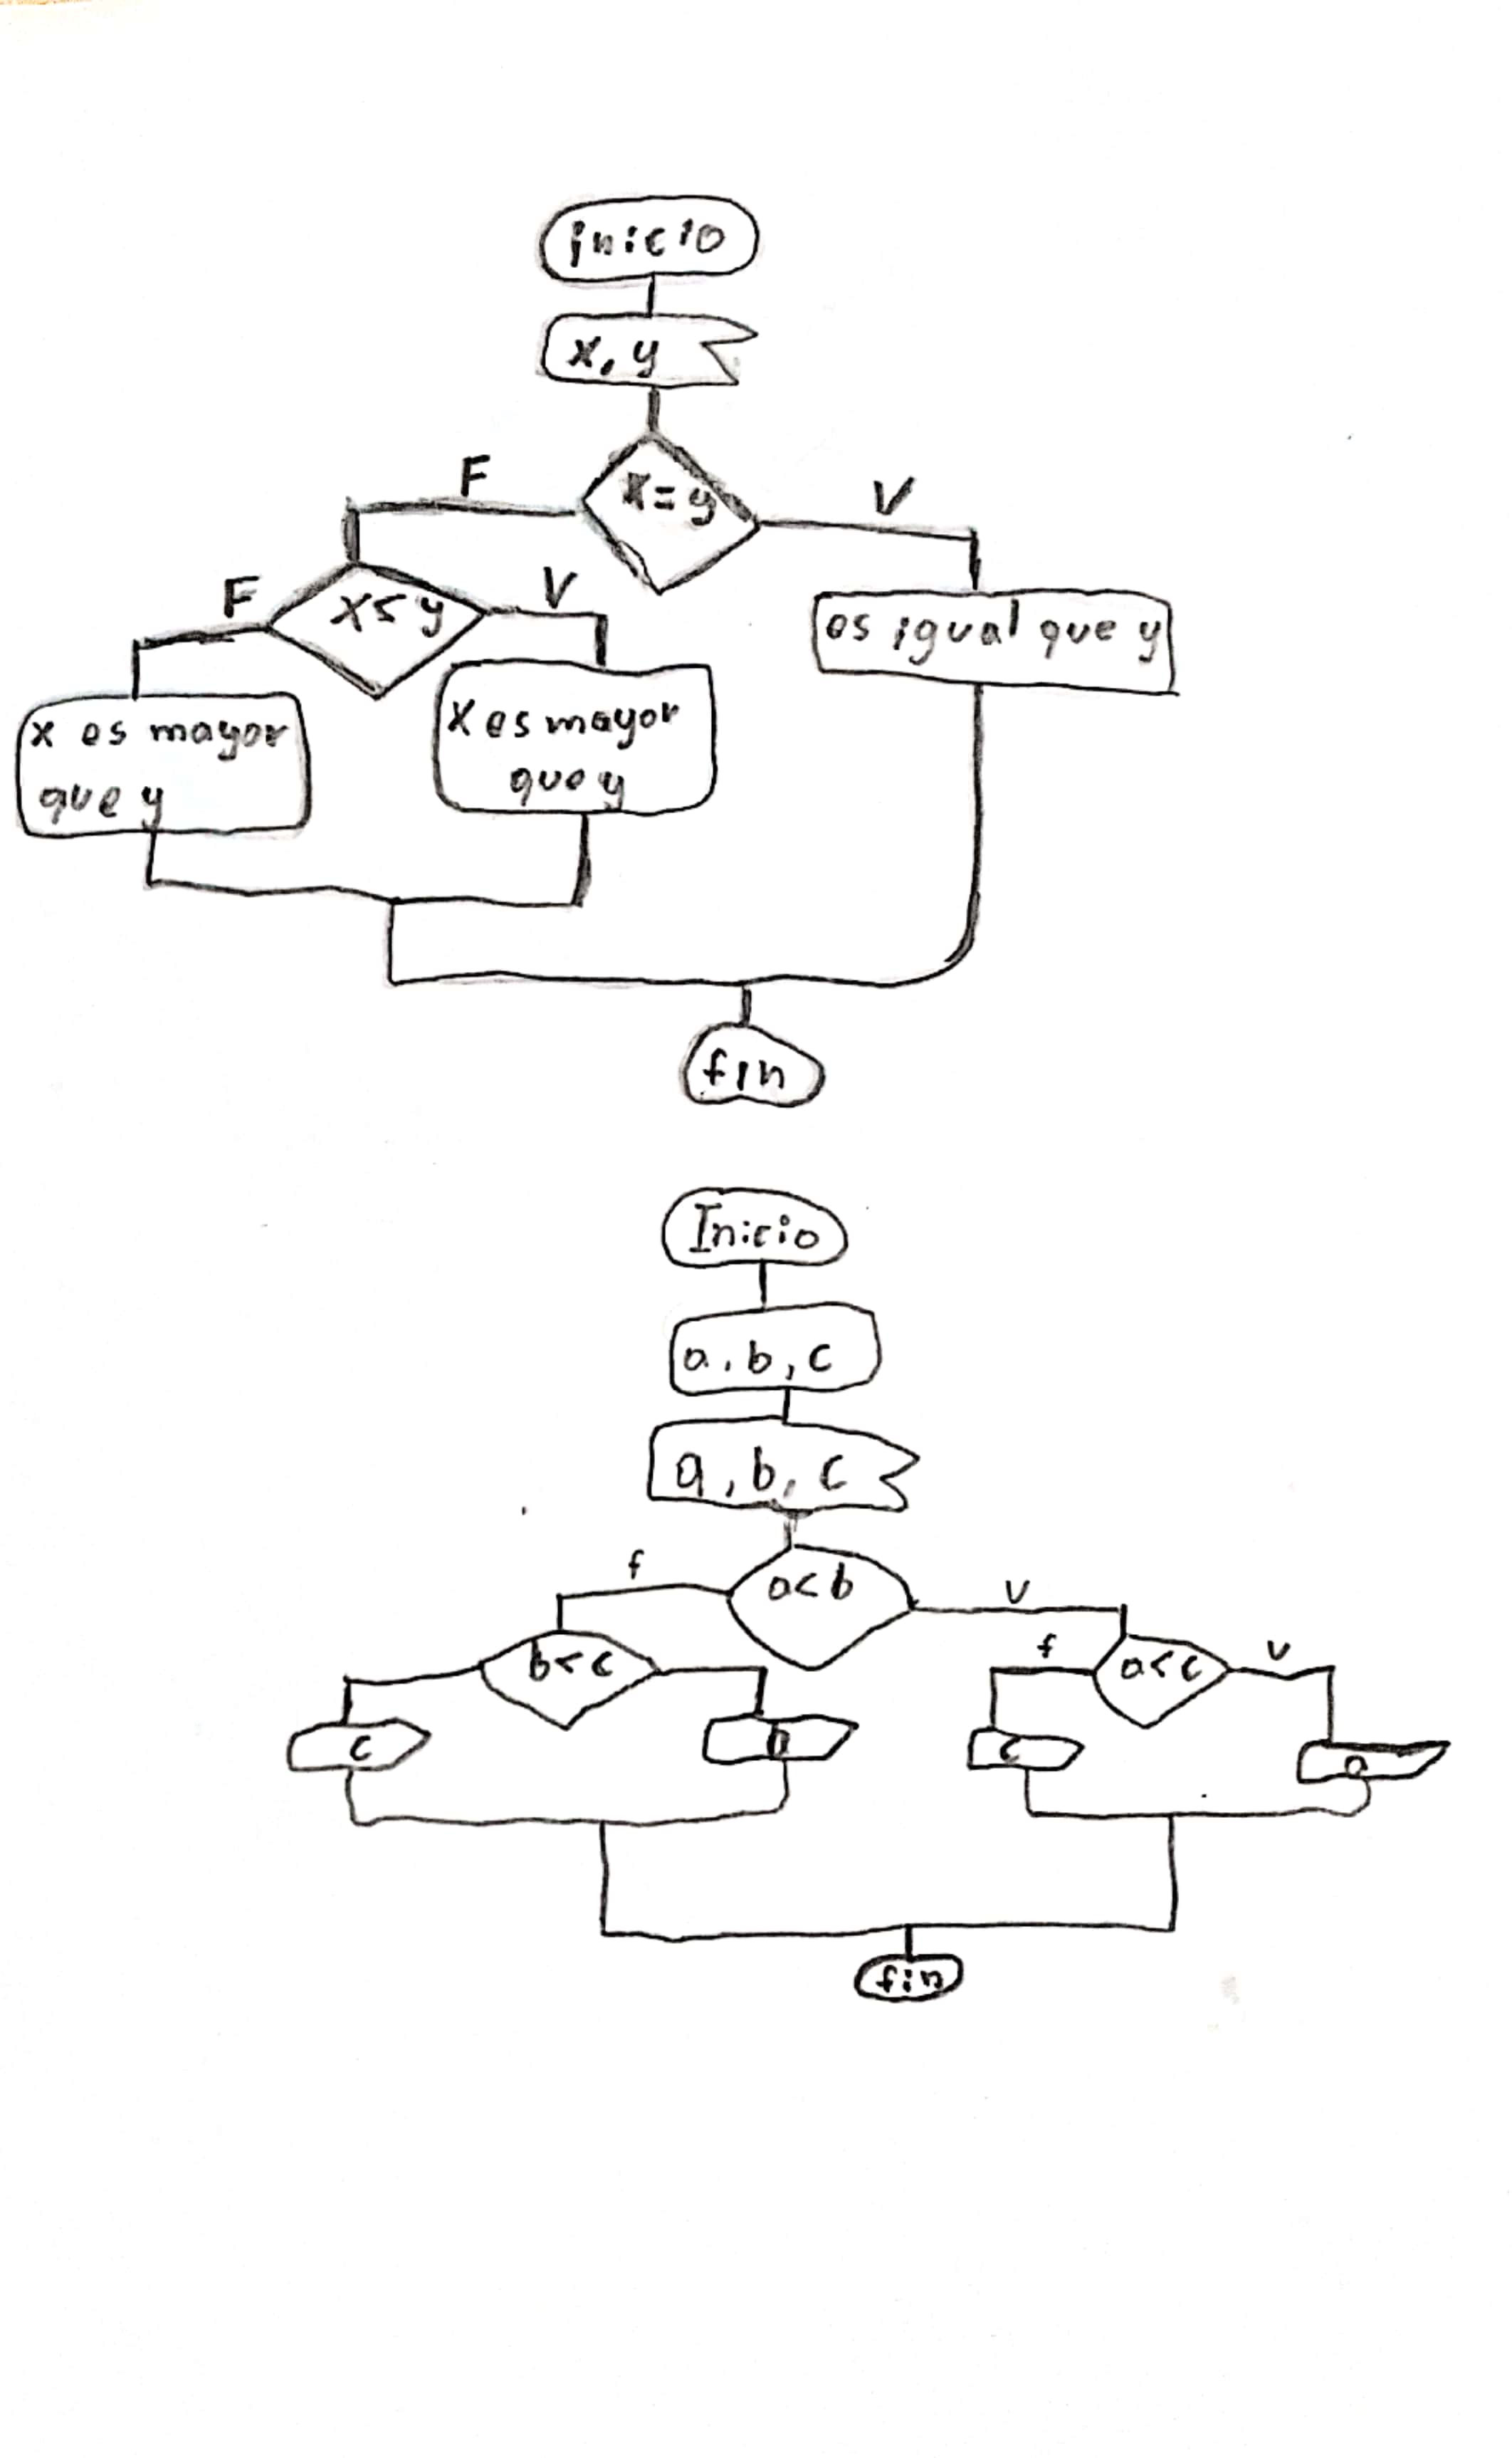 inicio
x, y
x=y
F
V
x≤y
F
V
es igual que y
x es mayor
que y
x es mayor
que y
fin
Inicio
a, b, c
a, b, c
a<b
f
v
b<c
a<c
f
v
c
c
a
fin